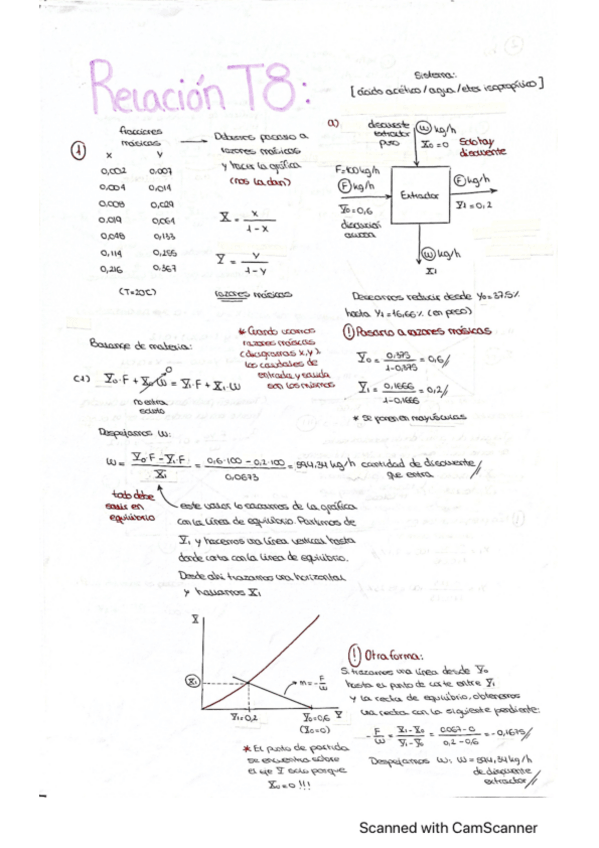 Relación T8:
Sistema:
[ácido acético/agua/eter isopropílico]
①
fracciones
másicas
x y
0,002 0,007
0,004 0,014
0,008 0,029
0,019 0,061
0,048 0,133
0,114 0,255
0,216 0,367
(T=20°C)
Debemos pasarlo a
razones másicas
y hacer la gráfica
(nos la dan)
X = x / 1-x
Y = y / 1-y
razones másicas
a)
disolvente
extractor
puro
W kg/h
X₀=0
Solo hay
disolvente
F=100 kg/h
F kg/h
Y₀=0,6
Extractor
F kg/h
Y₁=0,2
W kg/h
X₁
Deseamos reducir desde y₀=37.5%
hasta y₁=16,66% (en peso)
! Pasarlo a razones másicas
Y₀ = 0,375 / 1-0,375 = 0,6//
Y₁ = 0,1666 / 1-0,1666 = 0,2//
* Se ponen en mayúsculas
Balance de materia:
* Cuando usamos
razones másicas
(diagramas x,y)
los caudales de
entrada y salida
son los mismos
Y₀·F + X₀·W = Y₁·F + X₁·W
0
no entra
soluto
Despejamos W:
W = Y₀·F - Y₁·F / X₁ = 0,6·100 - 0,2·100 / 0,0673 = 594,34 kg/h cantidad de disolvente
que entra
todo debe
salir en
equilibrio
este valor lo sacamos de la gráfica
con la línea de equilibrio. Partimos de
Y₁ y hacemos una línea vertical hasta
donde corta con la línea de equilibrio.
Desde ahí trazamos una horizontal
y hallamos X₁
X
X₁
m = -F/W
Y₁=0,2 Y₀=0,6 Y
(X₀=0)
* El punto de partida
se encuentra sobre
el eje Y solo porque
X₀=0 !!!
! Otra forma:
Si trazamos una línea desde Y₀
hasta el punto de corte entre Y₁
y la recta de equilibrio, obtenemos
una recta con la siguiente pendiente:
-F/W = X₁-X₀ / Y₁-Y₀ = 0,067-0 / 0,2-0,6 = -0,1675//
Despejamos W; W = 594,34 kg/h
de disolvente
extractor//
Scanned with CamScanner